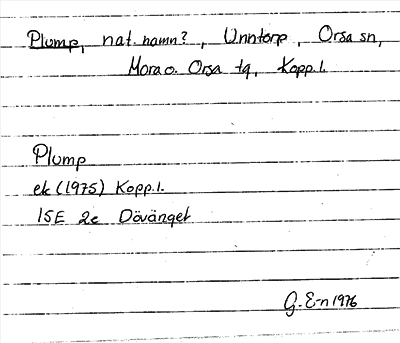 Plump, nat. namn?, Unntorp, Orsa sn,
Mora o. Orsa tg, Kopp.l.
Plump
ek (1975) Kopp.l.
15E 2c Dövänget
G. E-n 1976